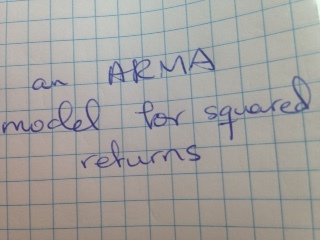 an ARMA
model for squared
returns